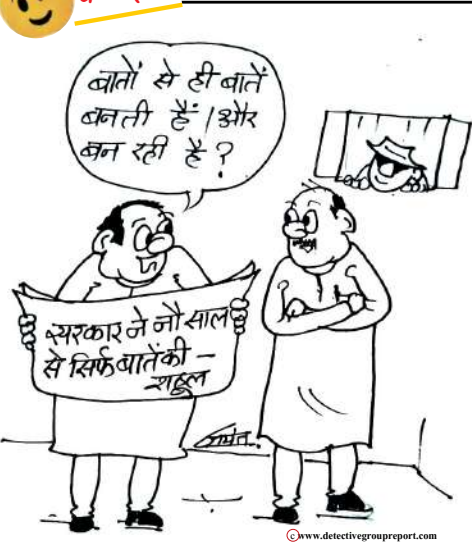 बातों से ही बातें
बनती हैं। और
बन रही है?
सरकार ने नौ साल
से सिर्फ बातें की -
राहुल
©www.detectivegroupreport.com